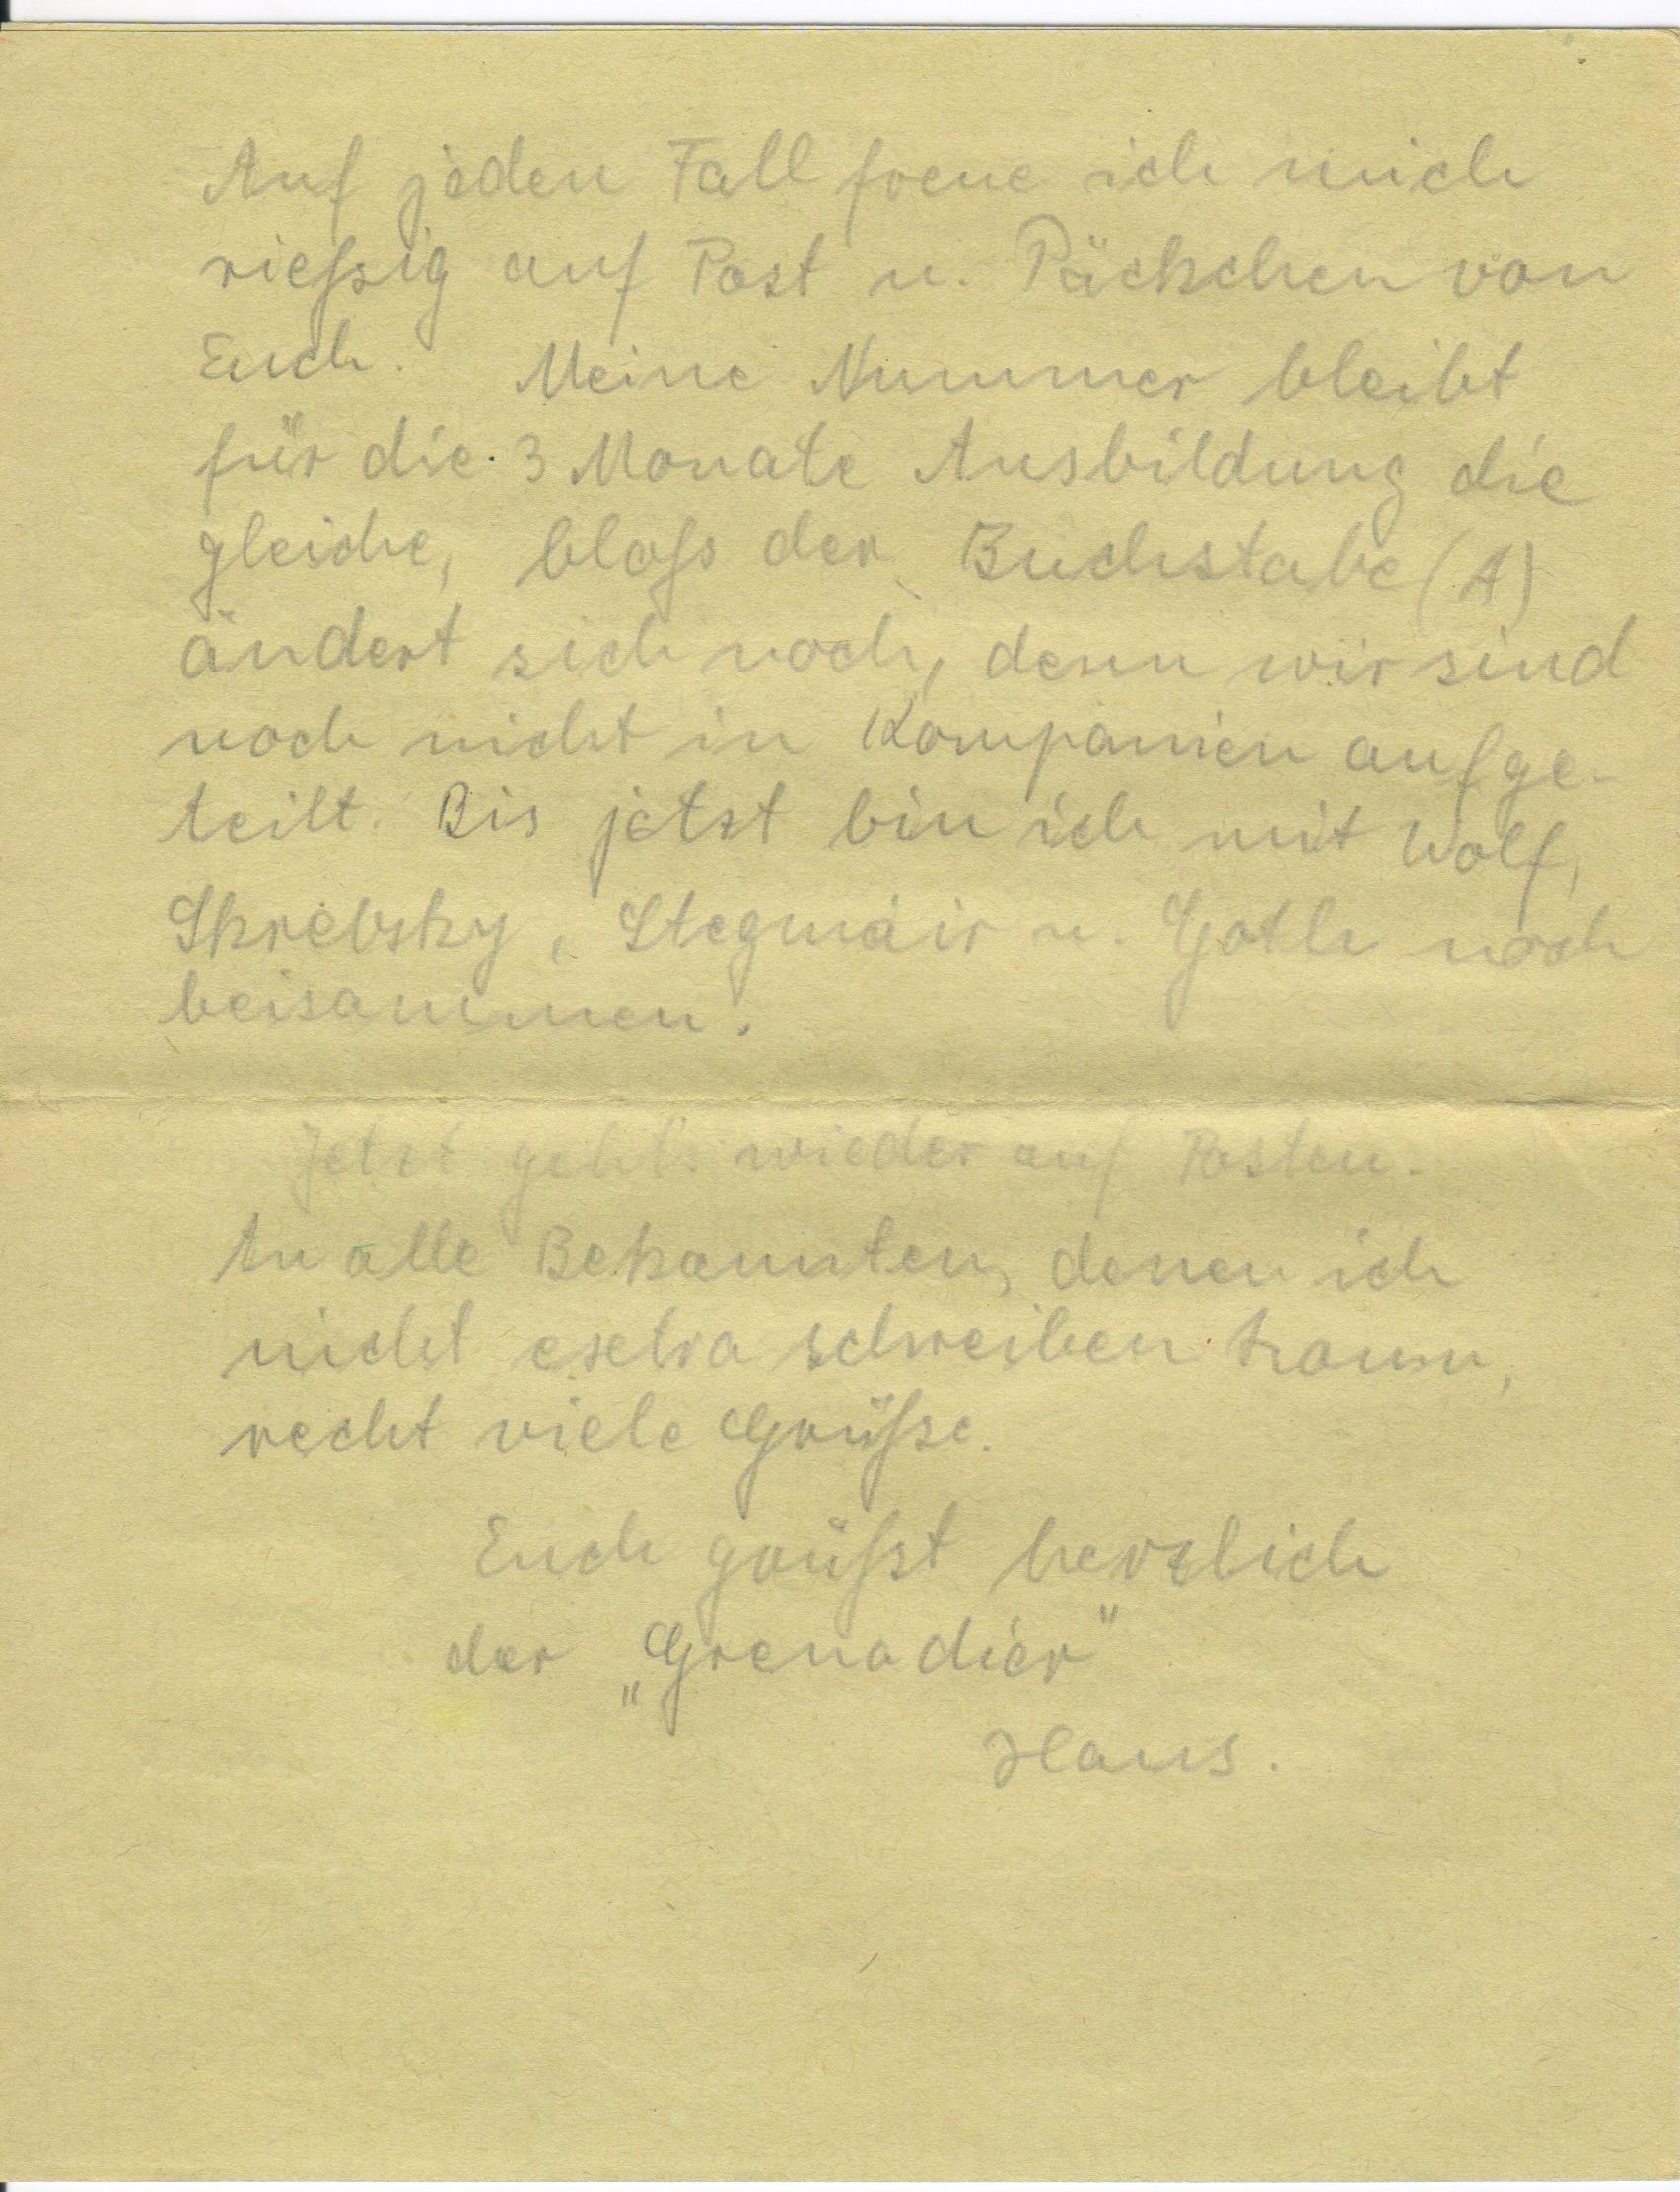 Auf jeden Fall freue ich mich
rießig auf Post u. Päckchen von
Euch. Meine Nummer bleibt
für die 3 Monate Ausbildung die
gleiche, bloß der Buchstabe (A)
ändert sich noch, denn wir sind
noch nicht in Kompanien aufge-
teilt. Bis jetzt bin ich mit Wolf,
Skrebsky, Stegmair u. Goth noch
beisammen.
Jetzt geht's wieder auf Posten.
An alle Bekannten, denen ich
nicht extra schreiben kann,
recht viele Grüße.
Euch grüßt herzlich
der „Grenadier"
Hans.